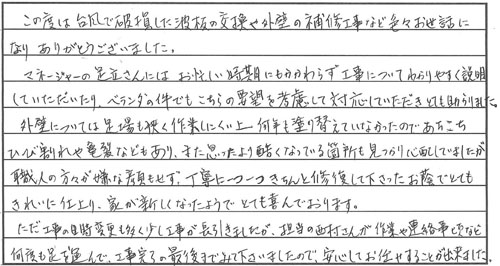 この度は台風で破損した波板の交換や外壁の補修工事など色々お世話に
なり ありがとうございました。
マネージャーの足立さんには お忙しい時期にもかかわらず工事についてわかりやすく説明
していただいたり、ベランダの件でもこちらの要望を考慮して対応していただきとても助かりました。
外壁については足場も狭く作業しにくい上 何年も塗り替えていなかったのであちこち
ひび割れや亀裂などもあり、また思ったより酷くなっている箇所も見つかり心配していましたが
職人の方々が嫌な顔もせず、丁寧に一つ一つきちんと修復して下さったお蔭でとても
きれいに仕上り、家が新しくなったようで とても喜んでおります。
ただ工事の日時変更も多く少し工事が長引きましたが、担当の西村さんが作業や連絡事項など
何度も足を運んで、工事完了の最後までみて下さいましたので、安心してお任せすることが出来ました。